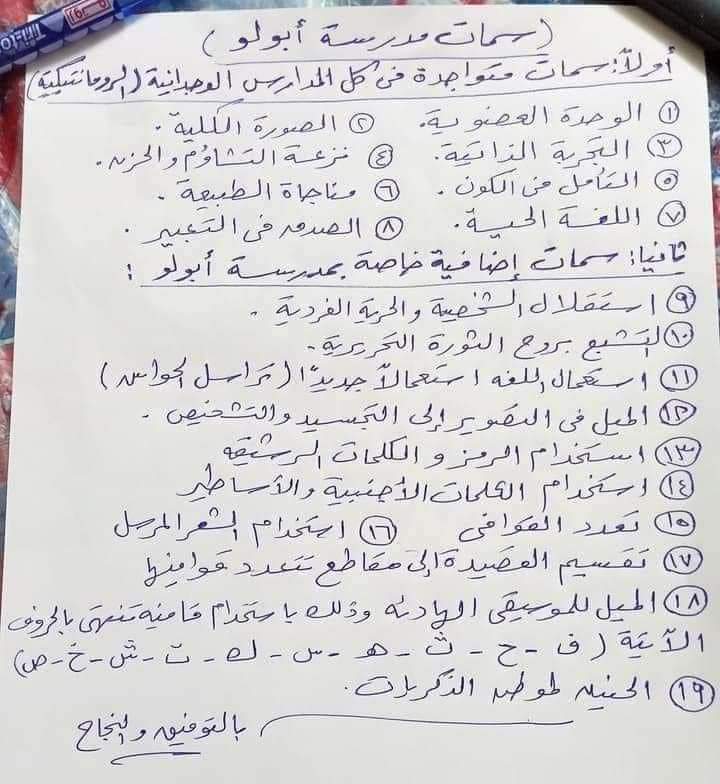 (سمات مدرسة أبولو)
أولاً: سمات متواجدة فى كل المدارس الوجدانية (الرومانتيكية)
① الوحدة العضوية. ② الصورة الكلية.
③ التجربة الذاتية. ④ نزعة التشاؤم والحزن.
⑤ التأمل فى الكون. ⑥ مناجاة الطبيعة.
⑦ اللغة الحية. ⑧ الصدق فى التعبير.
ثانيا: سمات إضافية خاصة بمدرسة أبولو:
⑨ استقلال الشخصية والحرية الفردية.
⑩ التشبع بروح الثورة التحريرية.
⑪ استعمال اللغه استعمالاً جديدًا (تراسل الحواس)
⑫ الميل فى التصوير إلى التجسيد والتشخيص.
⑬ استخدام الرمز و الكلمات الرشيقه
⑭ استخدام الكلمات الأجنبية والأساطير
⑮ تعدد القوافى ⑯ استخدام الشعر المرسل
⑰ تقسيم القصيدة إلى مقاطع تتعدد قوافيها
⑱ الميل للموسيقى الهادئه وذلك باستخدام قافيه تنتهى بالحروف
الآتية (ف - ح - ث - هـ - س - ك - ت - ش - خ - ص)
⑲ الحنين لموطن الذكريات.
بالتوفيق والنجاح